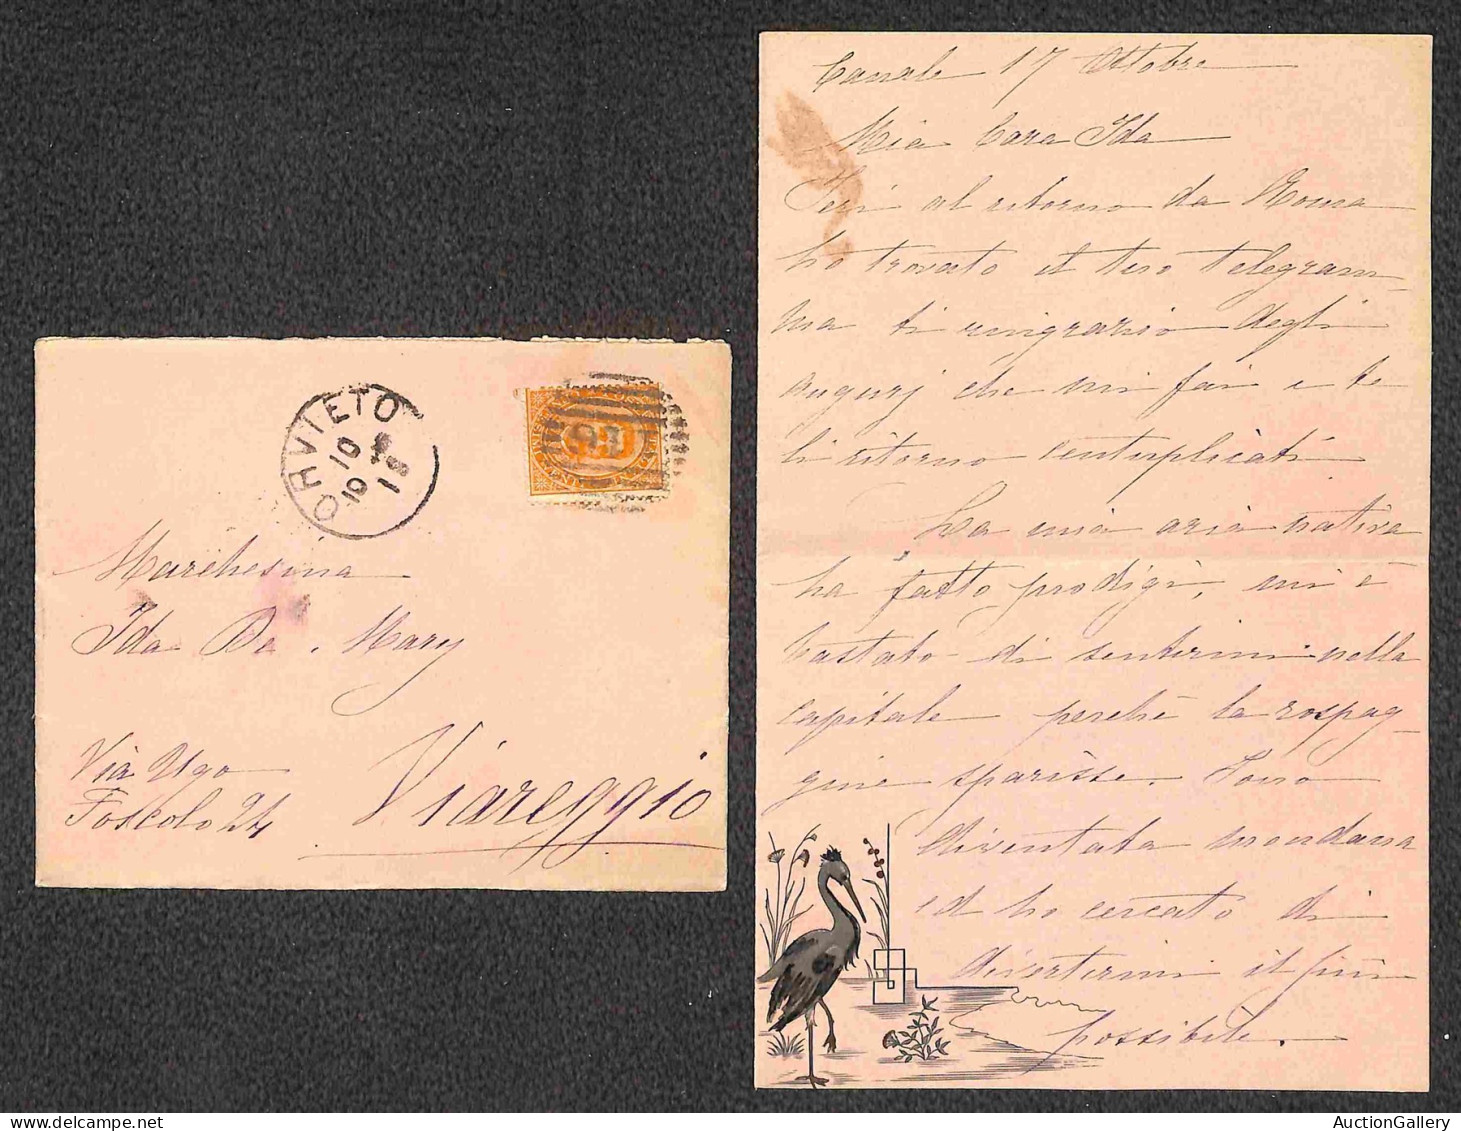 ORVIETO
10
10
18
91
Marchesina
Ida De Mary
Via Ugo
Foscolo 24
Viareggio
Canale 17 Ottobre
Mia Cara Ida
Ieri al ritorno da Roma
ho trovato il tuo telegram-
ma ti ringrazio degli
augurj che mi fai e te
li ritorno centuplicati
La mia aria nativa
ha fatto prodigi, mi è
bastato di sentirmi nella
capitale perchè la rospag
gine sparisse. Sono
diventata mondana
ed ho cercato di
divertirmi il più
possibile.
AuctionGallery